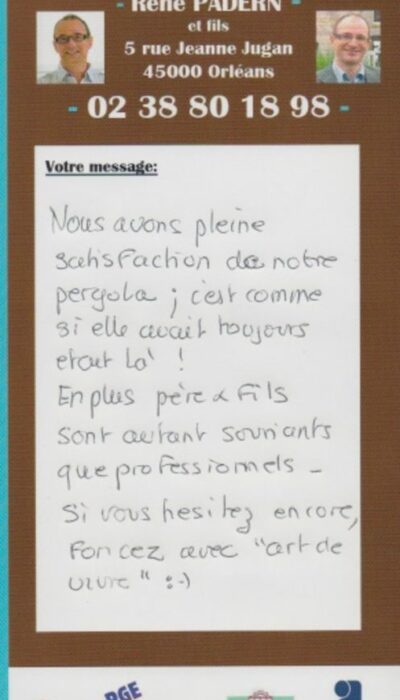 - René PADERN -
et fils
5 rue Jeanne Jugan
45000 Orléans
- 02 38 80 18 98 -
Votre message:
Nous avons pleine
satisfaction de notre
pergola ; c'est comme
si elle avait toujours
etait là !
En plus père & Fils
sont autant souriants
que professionnels -
Si vous hesitez encore,
Foncez avec "art de
vivre" :-)
RGE